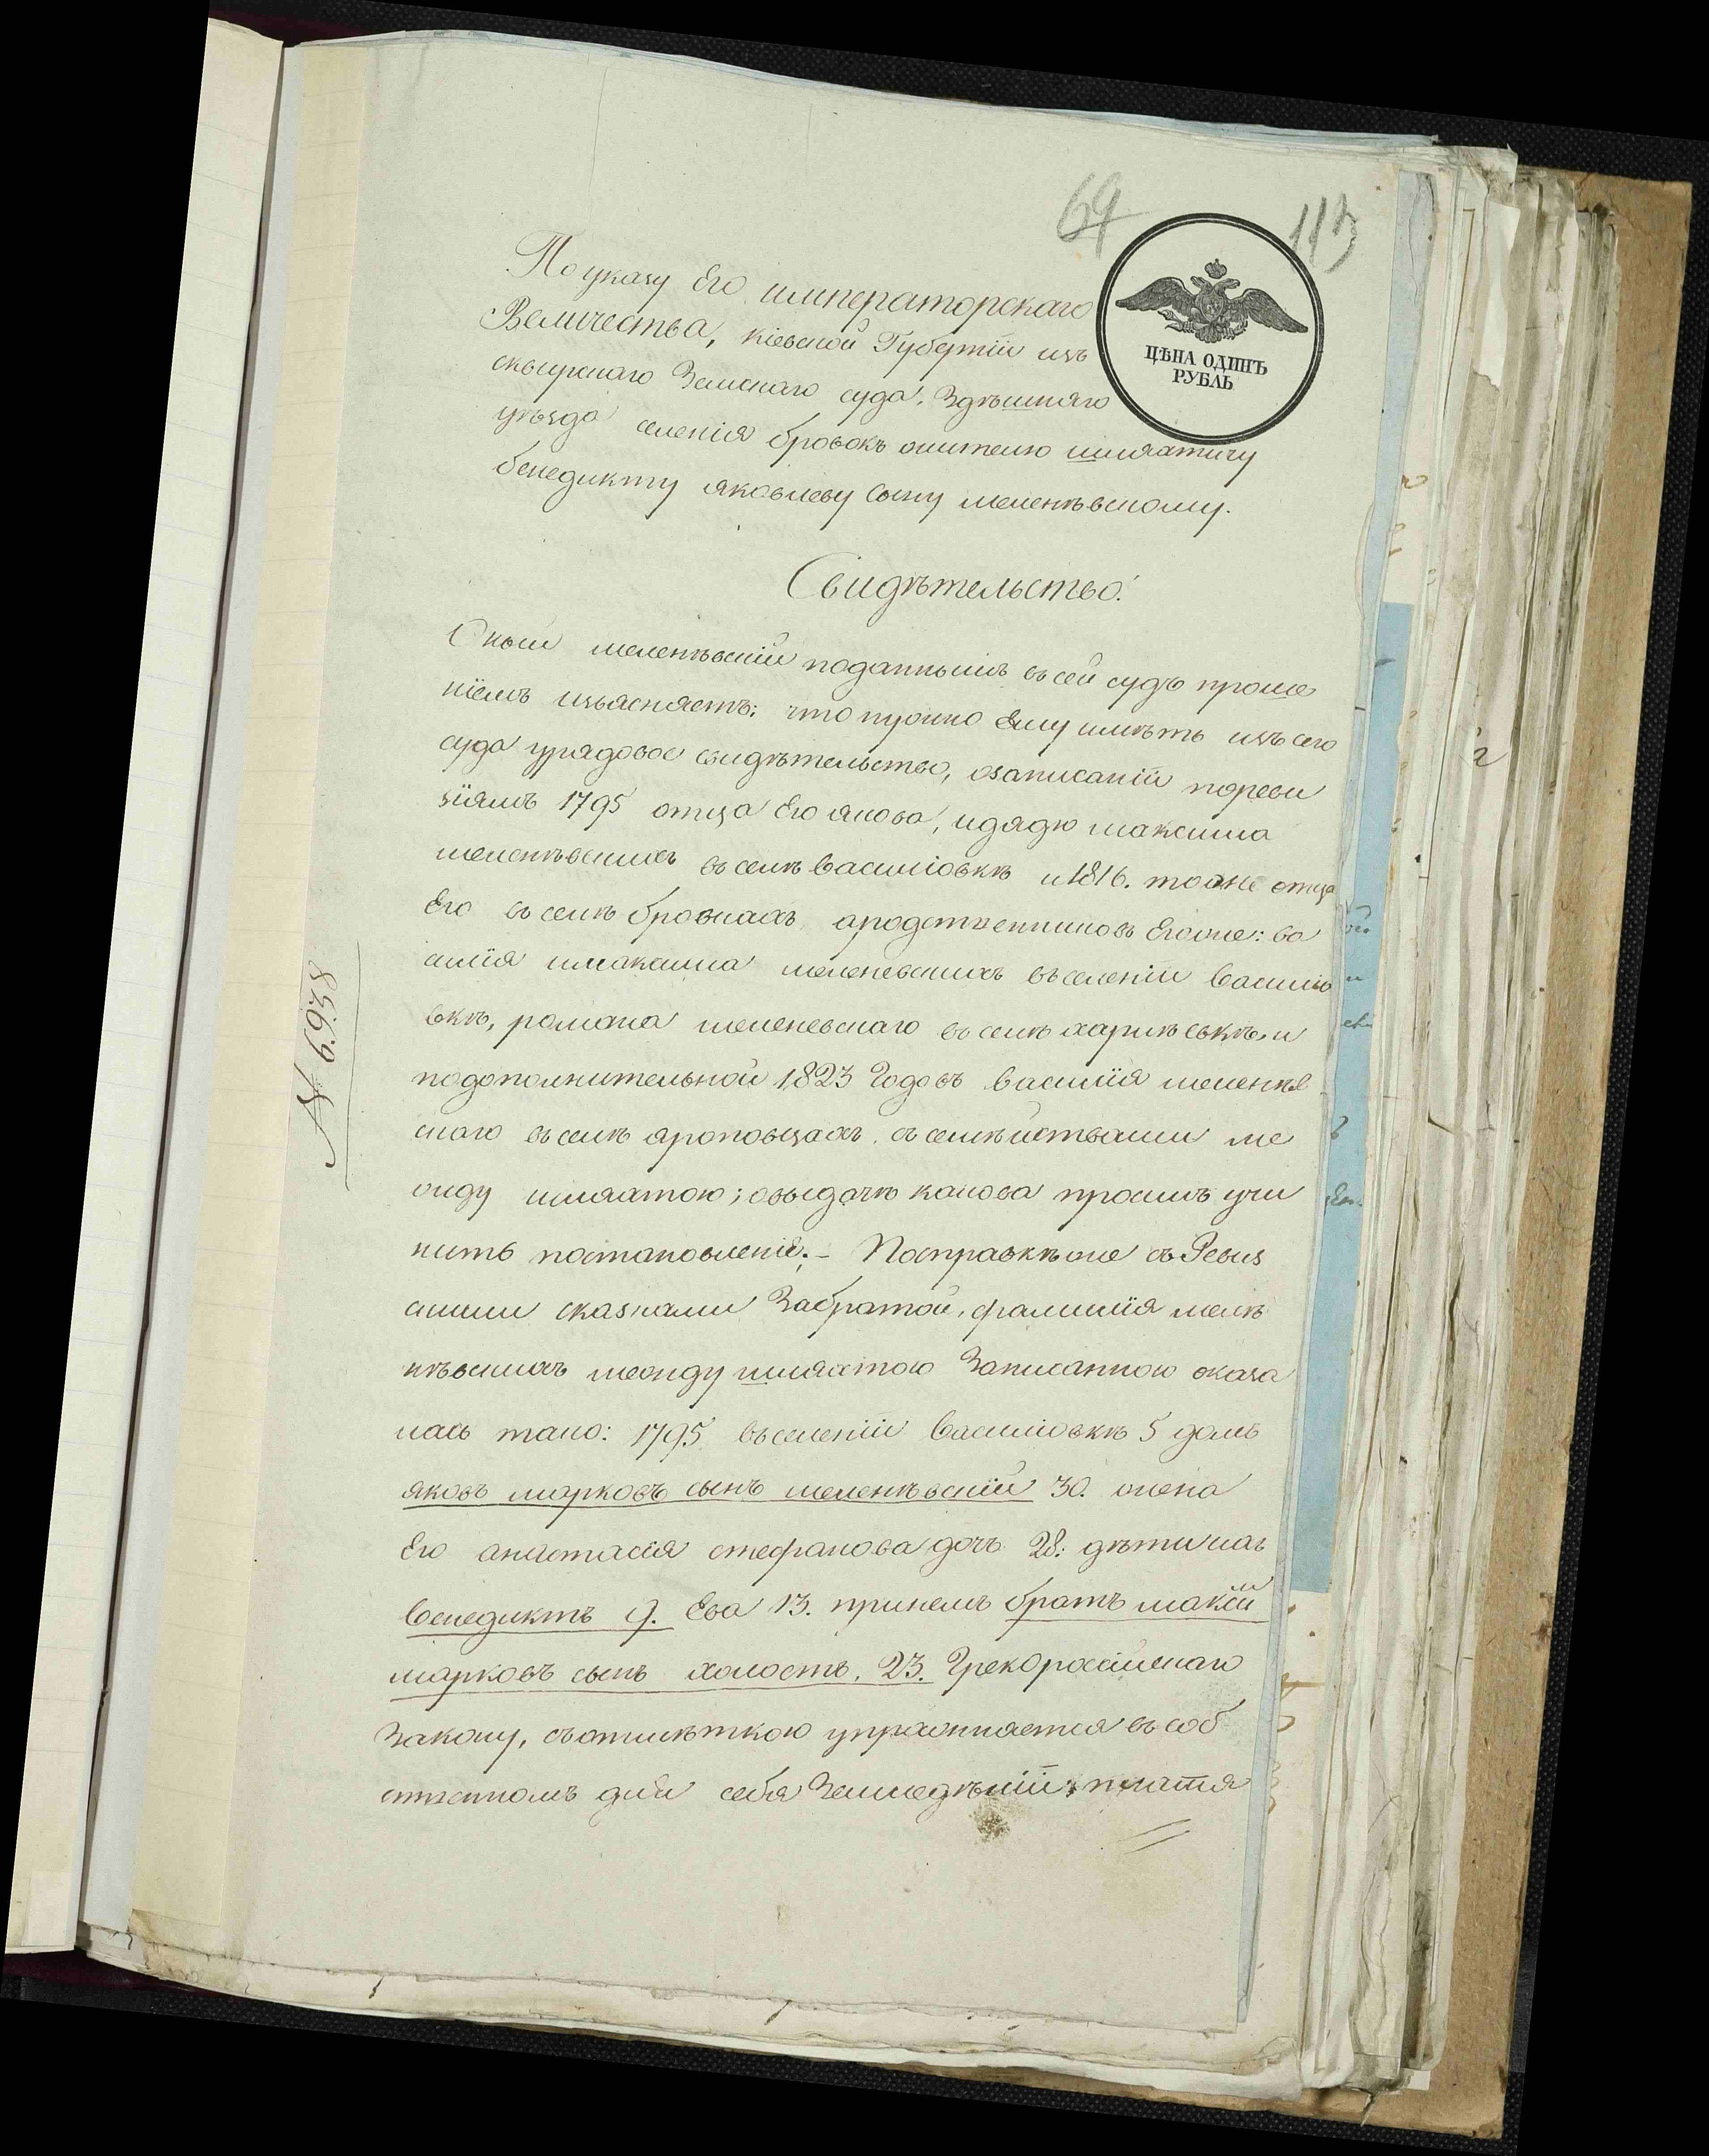 64
113
По указу Его императорскаго
Величества, кіевской Губерніи изъ
сквирскаго Земскаго суда, Здѣшняго
уѣзда селенія бровокъ жителю шляхтичу
бенедикту яковлеву сыну меленѣвскому.
ЦѢНА ОДИНЪ
РУБЛЬ
Свидѣтельство.
Оный меленѣвскій поданнымъ въ сей судъ проше
ніемъ изъясняетъ: что нужно Ему имѣть изъ сего
суда урядовое свидѣтельство, озаписаніи пореви
зіямъ 1795 отца Его якова, идядю максима
меленѣвскихъ въ селѣ василіовкѣ и 1816. тоже отца
Его въ селѣ бровкахъ, ародственниковъ Егоже: ва
силія имаксима меленевскихъ въ селеніи василіо
вкѣ, романа меленевскаго въ селѣ харлѣевкѣ, и
подополнительной 1823 Годовъ василія меленѣв
скаго въ селѣ яроповцахъ, съ семѣйствами ме
жду шляхтою; овыдачѣ какова проситъ учи
нить постановленіе; - Посправкѣже съ Ревиз
скими сказками Забратой, фамилія меле
нѣвскихъ между шляхтою Записанною оказа
лась тако: 1795 въ селеніи василіовкѣ 5 домъ
яковъ марковъ сынъ меленѣвскій 30. жена
Его анастасія стефанова дочъ 28: дѣти ихъ
венедиктъ 9. Ева 13. принемъ братъ максим
марковъ сынъ холостъ, 23. Грекороссійскаго
Закону, съ отмѣткою упражняется въ соб
ственномъ для себя Земледѣліи, платя
№ 6938